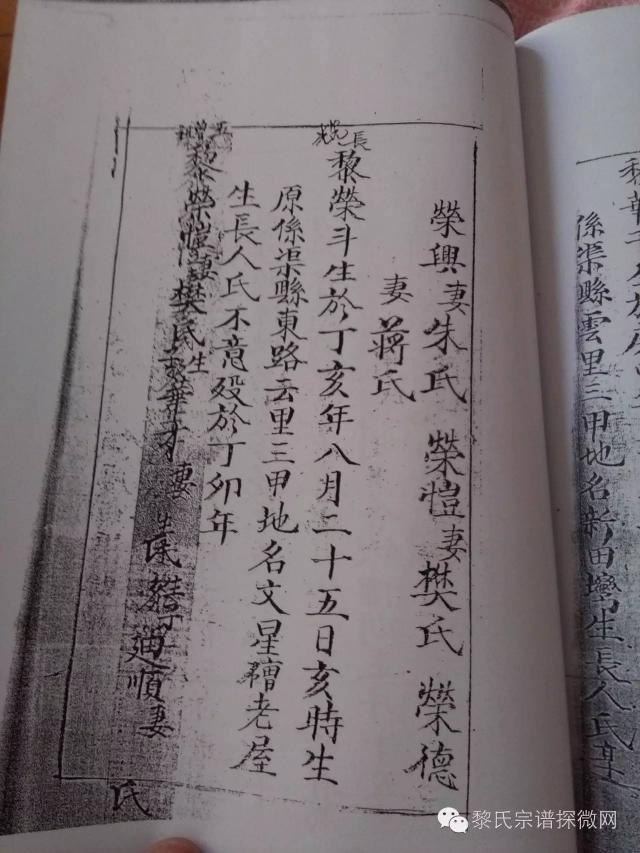 榮興妻朱氏 榮愷妻樊氏 榮德
妻蔣氏
長
黎榮斗生於丁亥年八月二十五日亥時生
原係渠縣東路云里三甲地名文星槽老屋
生長人氏不意殁於丁卯年
黎榮愷妻樊氏生 華才妻
生
廸順妻
氏
係渠縣雲里三甲地名新田灣生長人氏
黎氏宗谱探微网